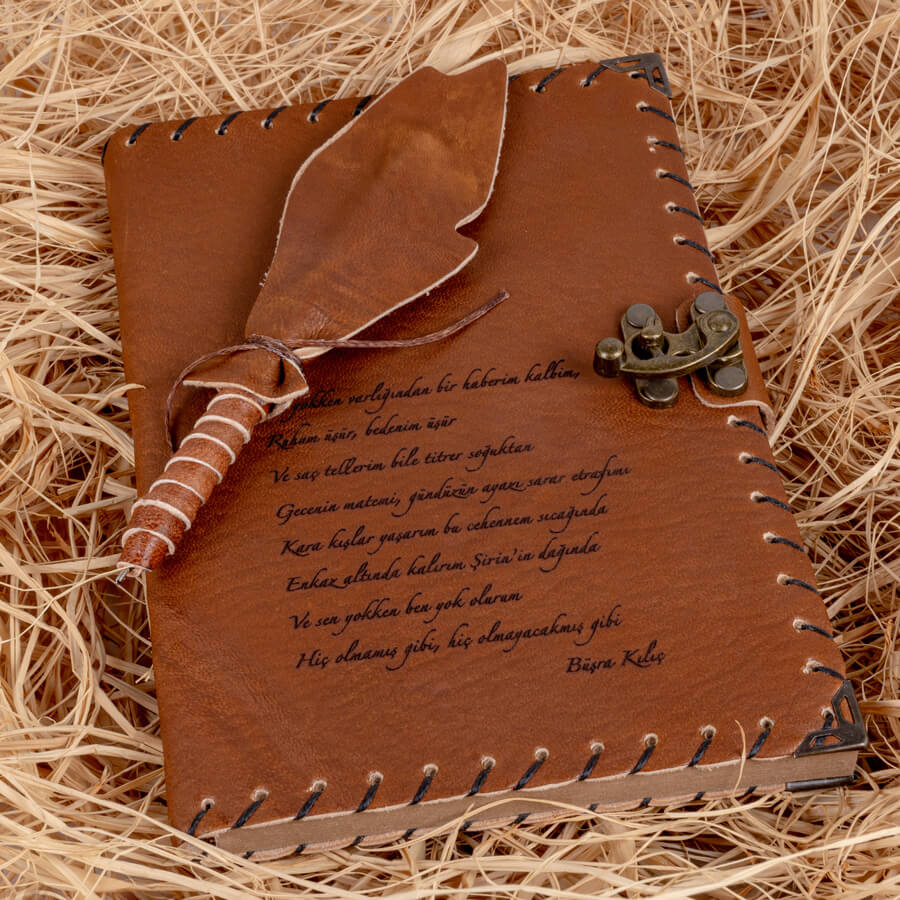 yokken varlığından bir haberim kalbim,
Rûhûm üşür, bedenim üşür
Ve saç tellerim bile titrer soğuktan
Gecenin matemi, gündüzün ayazı sarar etrafımı
Kara kışlar yaşarım bu cehennem sıcağında
Enkaz altında kalırım Şirin'in dağında
Ve sen yokken ben yok olurum
Hiç olmamış gibi, hiç olmayacakmış gibi
Büşra Kılıç